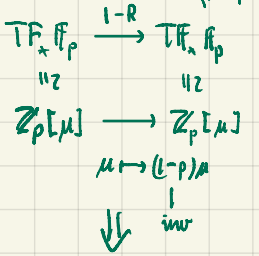 1-R
TF_* 𝔽_p ⟶ TF_* 𝔽_p
≅ ≅
ℤ_p[μ] ⟶ ℤ_p[μ]
μ ⟼ (1-p)μ
inv
⇓